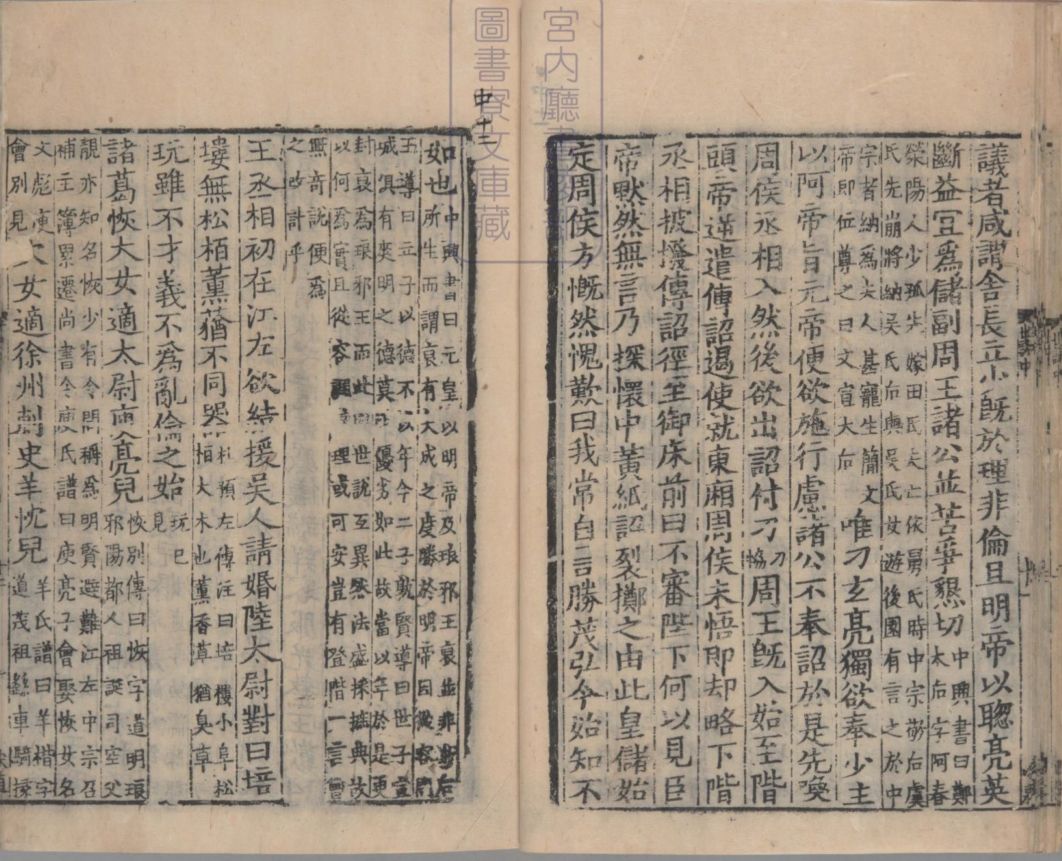 議者咸謂舍長立少既於理非倫且明帝以聰亮英
斷益宜爲儲副周王諸公並苦爭懇切中興書曰鄭太后字阿春
滎陽人少孤先嫁田氏夫亡依舅氏時中宗敬后虞
氏先崩將納吳氏后與吳氏女遊後園有言之於中
宗者納爲夫人甚寵生簡文帝即位尊之曰文宣太后唯刁玄亮獨欲奉少主
以阿帝旨元帝便欲施行慮諸公不奉詔於是先喚
周侯丞相入然後欲出詔付刁刁協周王既入始至階
頭帝逆遣傳詔遏使就東廂周侯未悟即却略下階
丞相披撥傳詔徑至御床前曰不審陛下何以見臣
帝默然無言乃探懷中黃紙詔裂擲之由此皇儲始
定周侯方慨然愧歎曰我常自言勝茂弘今始知不
如也中興書曰元皇以明帝及琅邪王裒並非敬后
所生而謂裒有大成之度勝於明帝因從容問
王導曰立子以德不以年今二子孰賢導曰世子宣
城俱有爽明之德莫能優劣如此故當以年於是更
封裒爲琅邪王而此與世說互異然法盛採摭典故
以何爲實且從容諷諫理或可安豈有登階一言
無奇說便爲
之改計乎
王丞相初在江左欲結援吳人請婚陸太尉對曰培
塿無松栢薰蕕不同器杜預左傳注曰培塿小阜松栢大木也薰香草蕕臭草
玩雖不才義不爲亂倫之始玩已見
諸葛恢大女適太尉庾亮兒恢別傳曰恢字道明琅邪陽都人祖誕司空父
靚亦知名恢少有令問稱爲明賢避難江左中宗召
補主簿累遷尚書令庾氏譜曰庾亮子會娶恢女名
文彪庾會別見次女適徐州刺史羊忱兒羊氏譜曰羊楷字道茂祖繇車騎掾
中十二
宮内廳書陵部
圖書寮文庫藏